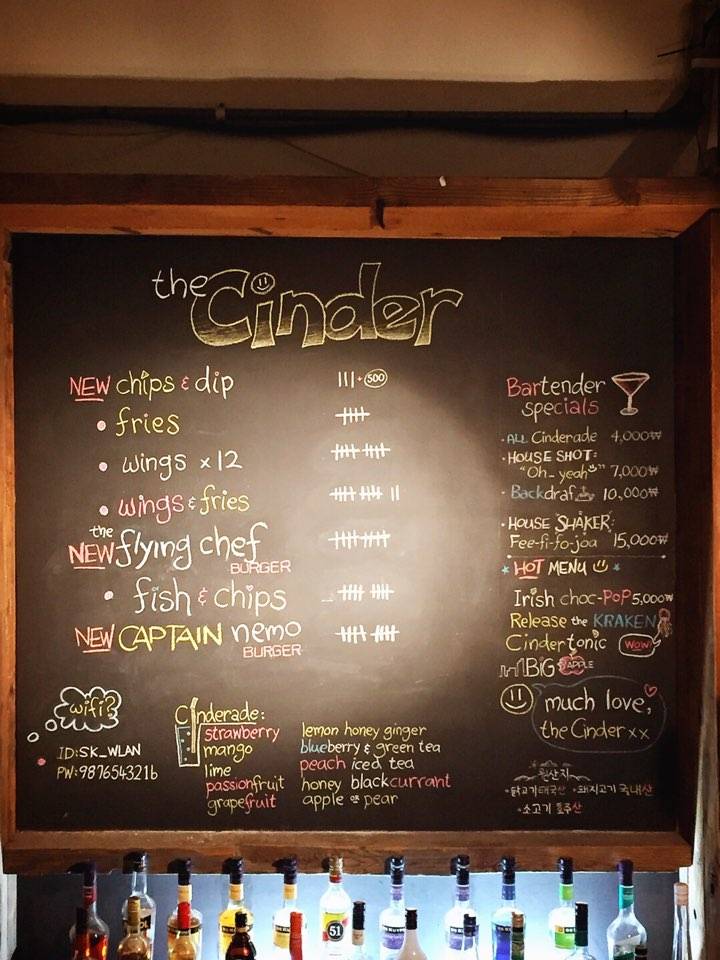 the Cinder
NEW chips & dip III + 500
• fries
• wings x12
• wings & fries
the
NEW flying chef
BURGER
• fish & chips
NEW CAPTAIN nemo
BURGER
Bartender
specials
• ALL Cinderade 4,000₩
• HOUSE SHOT:
"Oh.. yeah" 7,000₩
• Backdraf 10,000₩
• HOUSE SHAKER:
Fee-fi-fo-joa 15,000₩
HOT MENU
Irish choc-POP 5,000₩
Release the KRAKEN
Cindertonic WOW!
BIG APPLE
much love,
the Cinder xx
wifi?
ID:SK_WLAN
PW:987654321b
Cinderade:
strawberry
mango
lime
passionfruit
grapefruit
lemon honey ginger
blueberry & green tea
peach iced tea
honey blackcurrant
apple or pear
원산지
•닭고기태국산 •돼지고기 국내산
•소고기 호주산
51